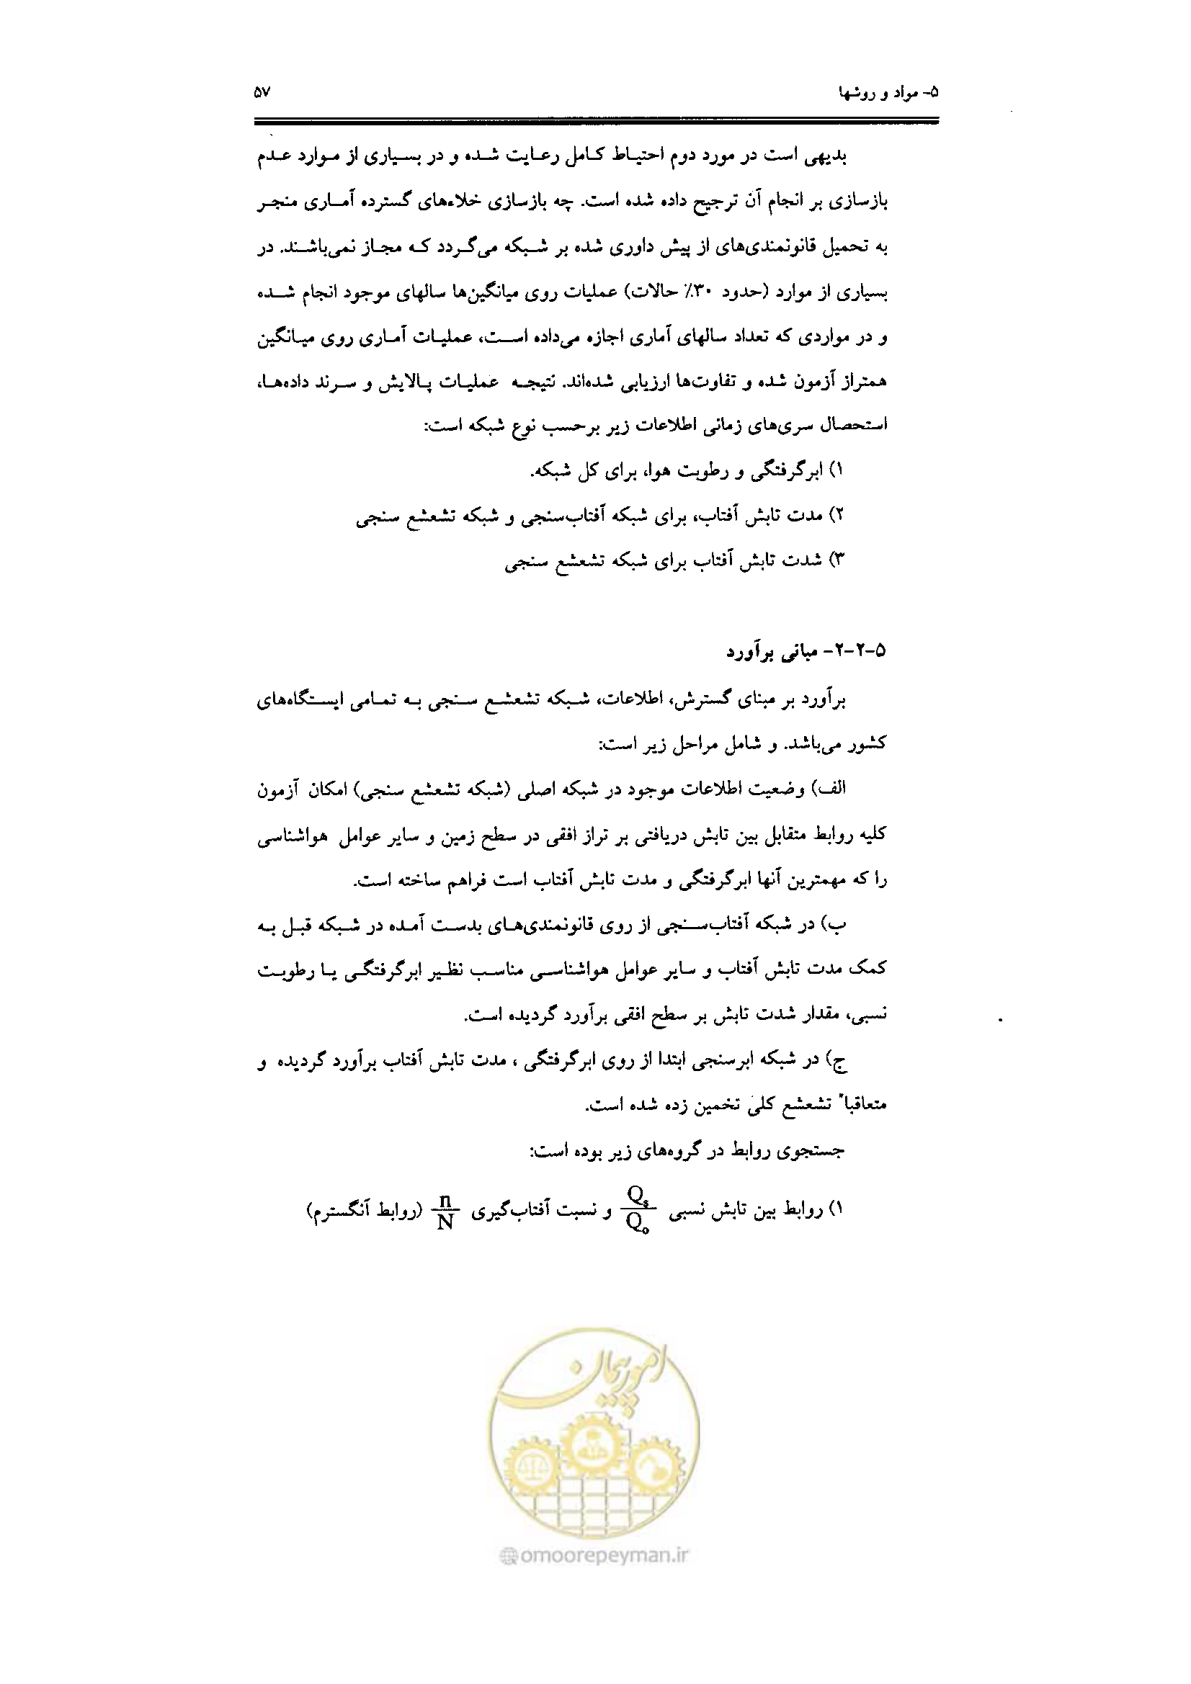 ۵- مواد و روشها ۵۷
بدیهی است در مورد دوم احتیاط کامل رعایت شده و در بسیاری از موارد عدم
بازسازی بر انجام آن ترجیح داده شده است. چه بازسازی خلاءهای گسترده آماری منجر
به تحمیل قانونمندی‌های از پیش داوری شده بر شبکه می‌گردد که مجاز نمی‌باشند. در
بسیاری از موارد (حدود ۳۰٪ حالات) عملیات روی میانگین‌ها سالهای موجود انجام شده
و در مواردی که تعداد سالهای آماری اجازه می‌داده است، عملیات آماری روی میانگین
همتراز آزمون شده و تفاوت‌ها ارزیابی شده‌اند. نتیجه عملیات پالایش و سرند داده‌ها،
استحصال سری‌های زمانی اطلاعات زیر برحسب نوع شبکه است:
۱) ابرگرفتگی و رطوبت هوا، برای کل شبکه.
۲) مدت تابش آفتاب، برای شبکه آفتاب‌سنجی و شبکه تشعشع سنجی
۳) شدت تابش آفتاب برای شبکه تشعشع سنجی
۵-۲-۲- مبانی برآورد
برآورد بر مبنای گسترش، اطلاعات، شبکه تشعشع سنجی به تمامی ایستگاه‌های
کشور می‌باشد. و شامل مراحل زیر است:
الف) وضعیت اطلاعات موجود در شبکه اصلی (شبکه تشعشع سنجی) امکان آزمون
کلیه روابط متقابل بین تابش دریافتی بر تراز افقی در سطح زمین و سایر عوامل هواشناسی
را که مهمترین آنها ابرگرفتگی و مدت تابش آفتاب است فراهم ساخته است.
ب) در شبکه آفتاب‌سنجی از روی قانونمندی‌های بدست آمده در شبکه قبل به
کمک مدت تابش آفتاب و سایر عوامل هواشناسی مناسب نظیر ابرگرفتگی یا رطوبت
نسبی، مقدار شدت تابش بر سطح افقی برآورد گردیده است.
ج) در شبکه ابرسنجی ابتدا از روی ابرگرفتگی ، مدت تابش آفتاب برآورد گردیده و
متعاقباً تشعشع کلی تخمین زده شده است.
جستجوی روابط در گروه‌های زیر بوده است:
۱) روابط بین تابش نسبی Qs/Qo و نسبت آفتاب‌گیری n/N (روابط آنگسترم)
امور پیمان
@omoorepeyman.ir